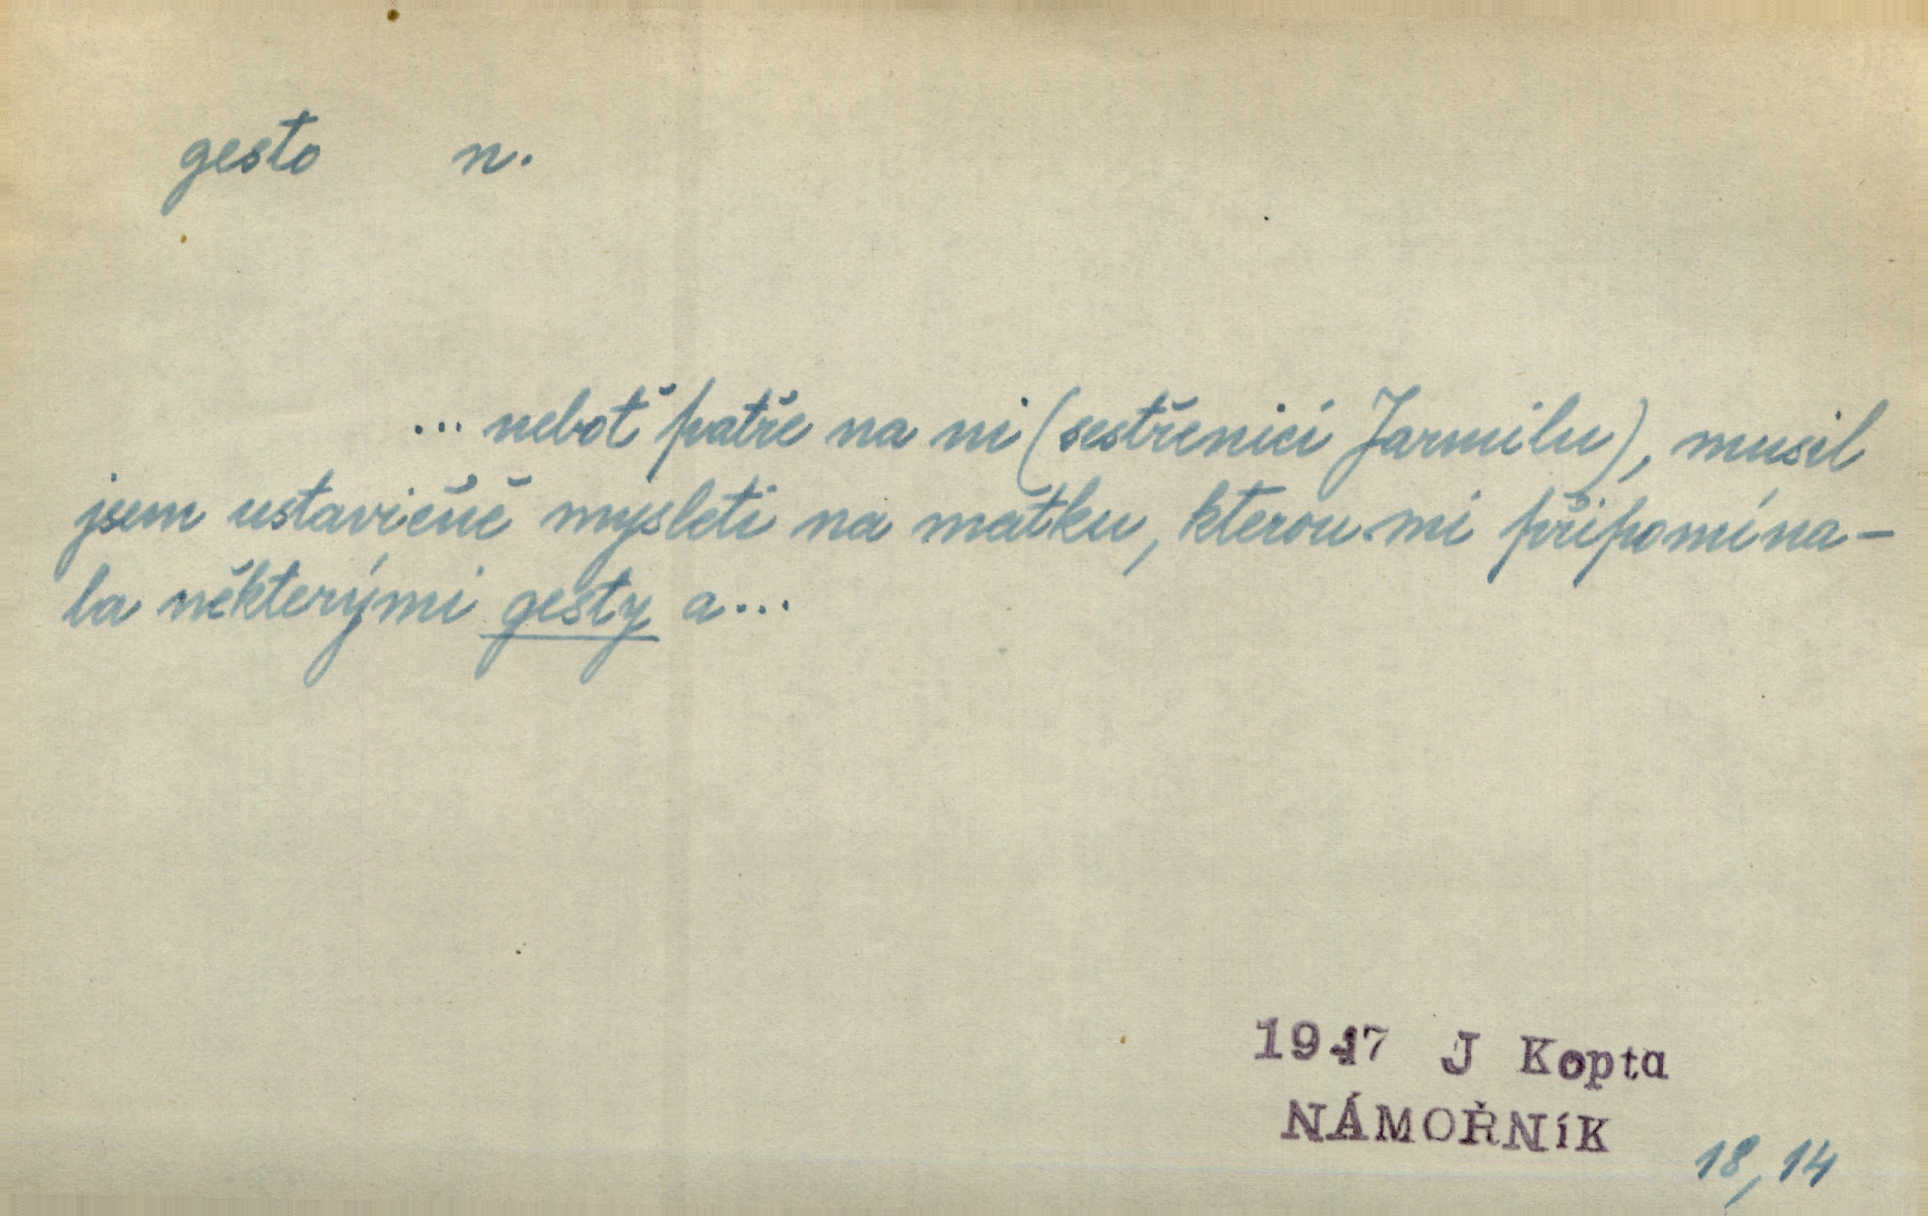 gesto n.
... neboť patře na ni (sestřenici Jarmilu), musil
jsem ustavičně mysleti na matku, kterou mi připomína-
la některými gesty a...
1947 J Kopta
NÁMOŘNíK
18, 14